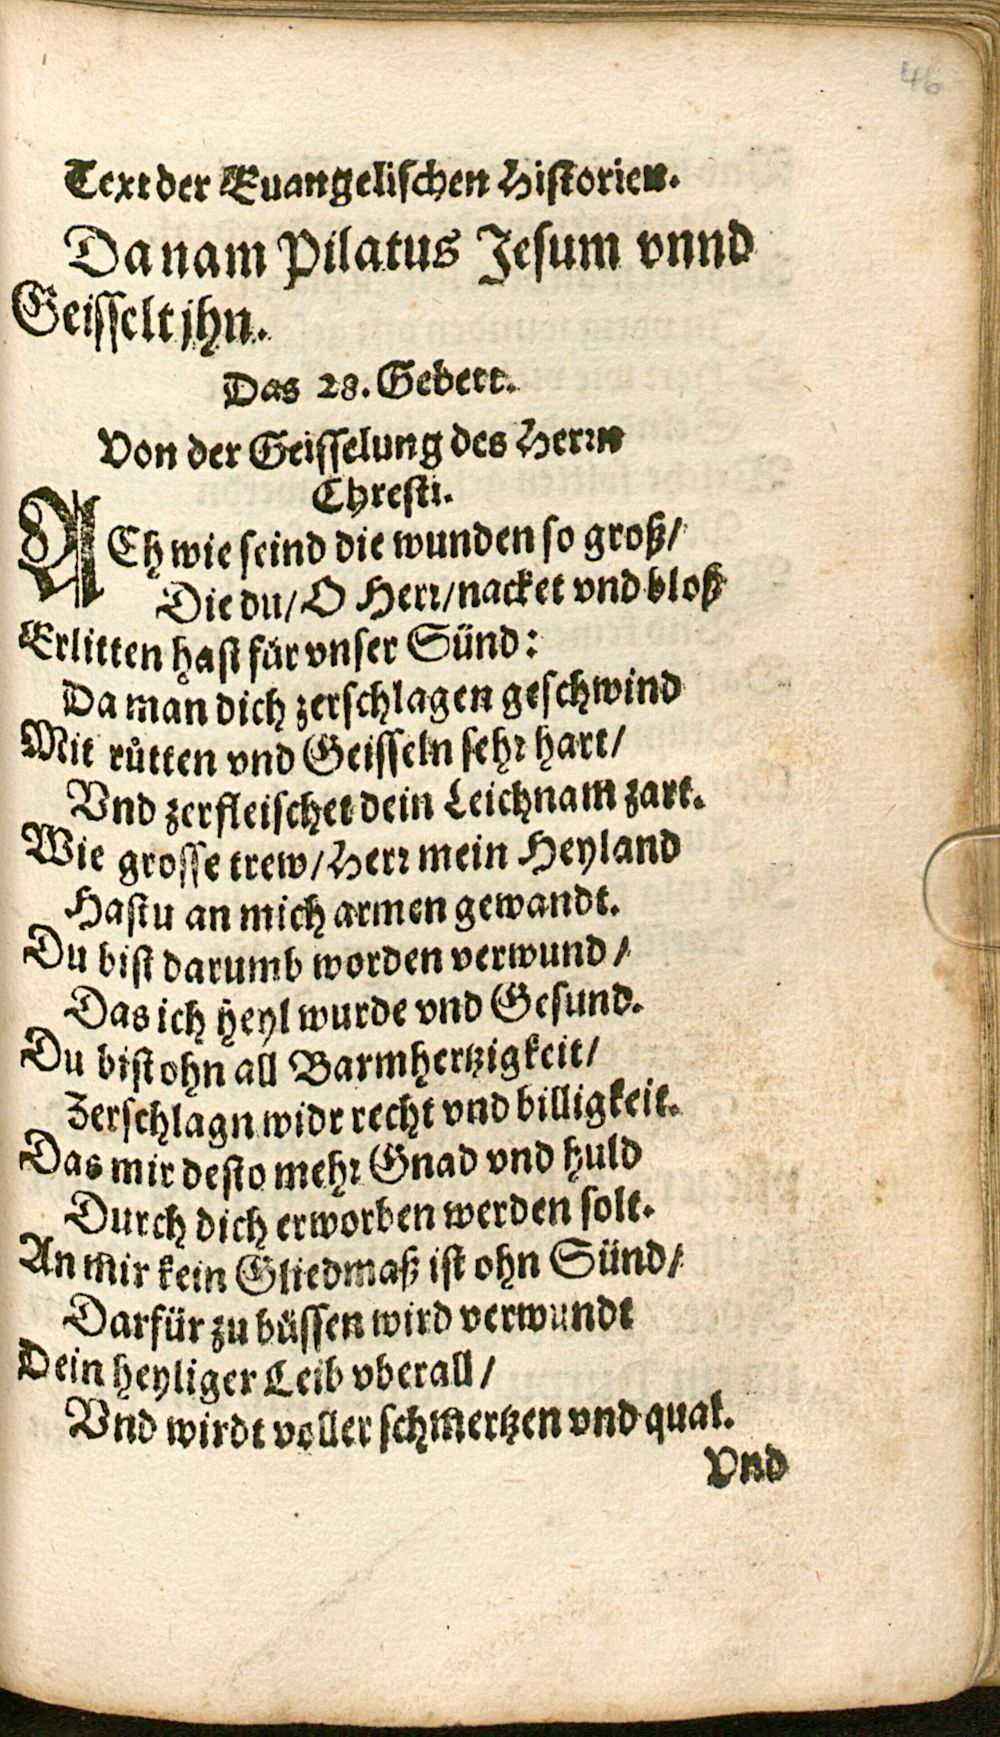 46
Text der Euangelischen Historien.
Da nam Pilatus Jesum vnnd
Geisselt jhn.
Das 28. Gebett.
Von der Geisselung des Herrn
Chresti.
ACh wie seind die wunden so groß/
Die du/ O Herr/ nacket vnd bloß
Erlitten hast für vnser Sünd:
Da man dich zerschlagen geschwind
Mit růtten vnd Geisseln sehr hart/
Vnd zerfleischet dein Leichnam zart.
Wie grosse trew/ Herr mein Heyland
Hastu an mich armen gewandt.
Du bist darumb worden verwund/
Das ich heyl wurde vnd Gesund.
Du bist ohn all Barmhertzigkeit/
Zerschlagn widr recht vnd billigkeit.
Das mir desto mehr Gnad vnd huld
Durch dich erworben werden solt.
An mir kein Gliedmaß ist ohn Sünd/
Darfür zu büssen wird verwundt
Dein heyliger Leib vberall/
Vnd wirdt voller schmertzen vnd qual.
Vnd